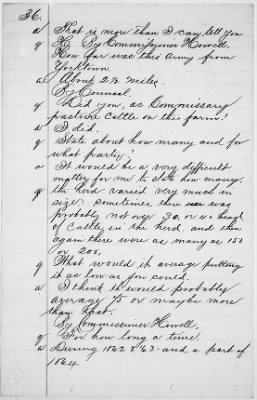 36.
a That is more than I can tell you
q By Commissioner Howell.
How far was this Army from
Yorktown.
a About 2 1/2 miles.
By Counsel.
q Did you, as Commissary
pasture cattle on this farm?
a I did.
q State about how many and for
what party;
a It would be a very difficult
matter for me to state how many.
the herd varied very much in
size. sometimes there was
probably not over 30. or 40 head
of Cattle in the herd, and then
again there were as many as 150
or 200.
q What would it average putting
it as low as you could.
a. I think it would probably
average 75 or maybe more
than that.
By Commissioner Howell.
q For how long a time.
a During 1862 & '63- and a part of
1864